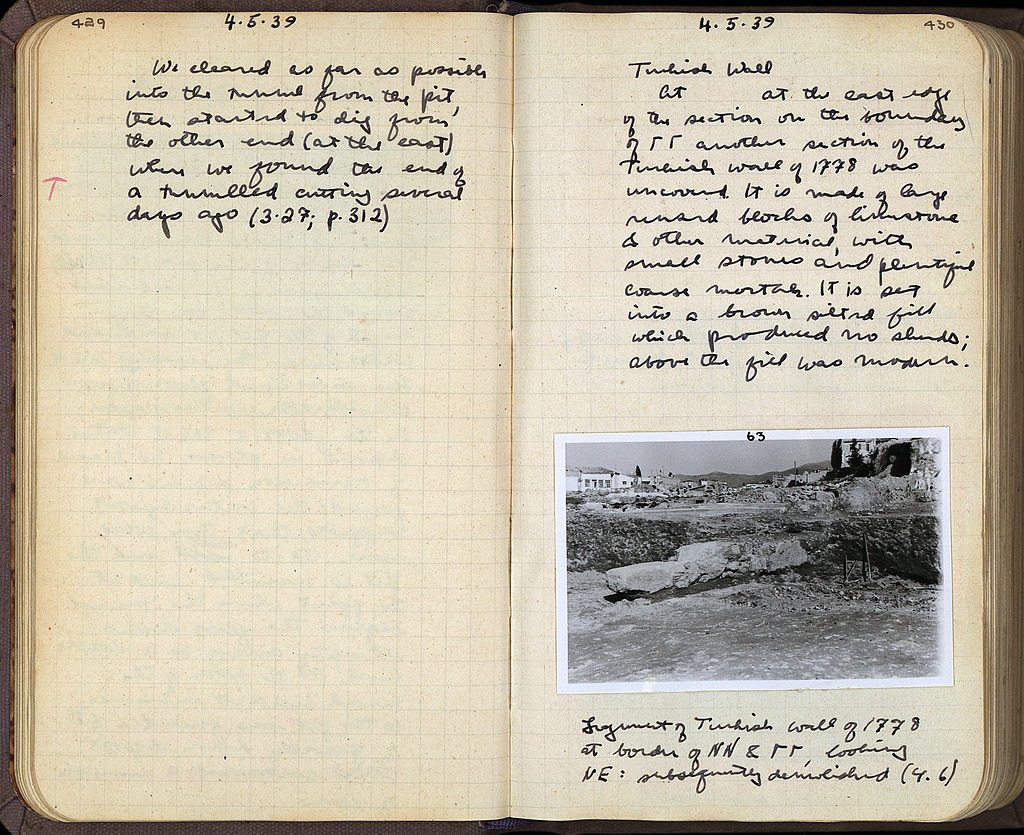 429
4.5.39
We cleared as far as possible
into the tunnel from the pit,
then started to dig from
the other end (at the east)
where we found the end of
T
a tunnelled cutting several
days ago (3.27; p.312)
4.5.39
430
Turkish Wall
At at the east edge
of the section on the boundary
of ΓΓ another section of the
Turkish wall of 1778 was
uncovered. It is made of large
reused blocks of limestone
& other material, with
small stones and plentiful
coarse mortar. It is set
into a brown silted fill
which produced no sherds;
above the fill was modern.
63
Fragment of Turkish wall of 1778
at border of NN & ΓΓ, looking
NE: subsequently demolished (4.6)